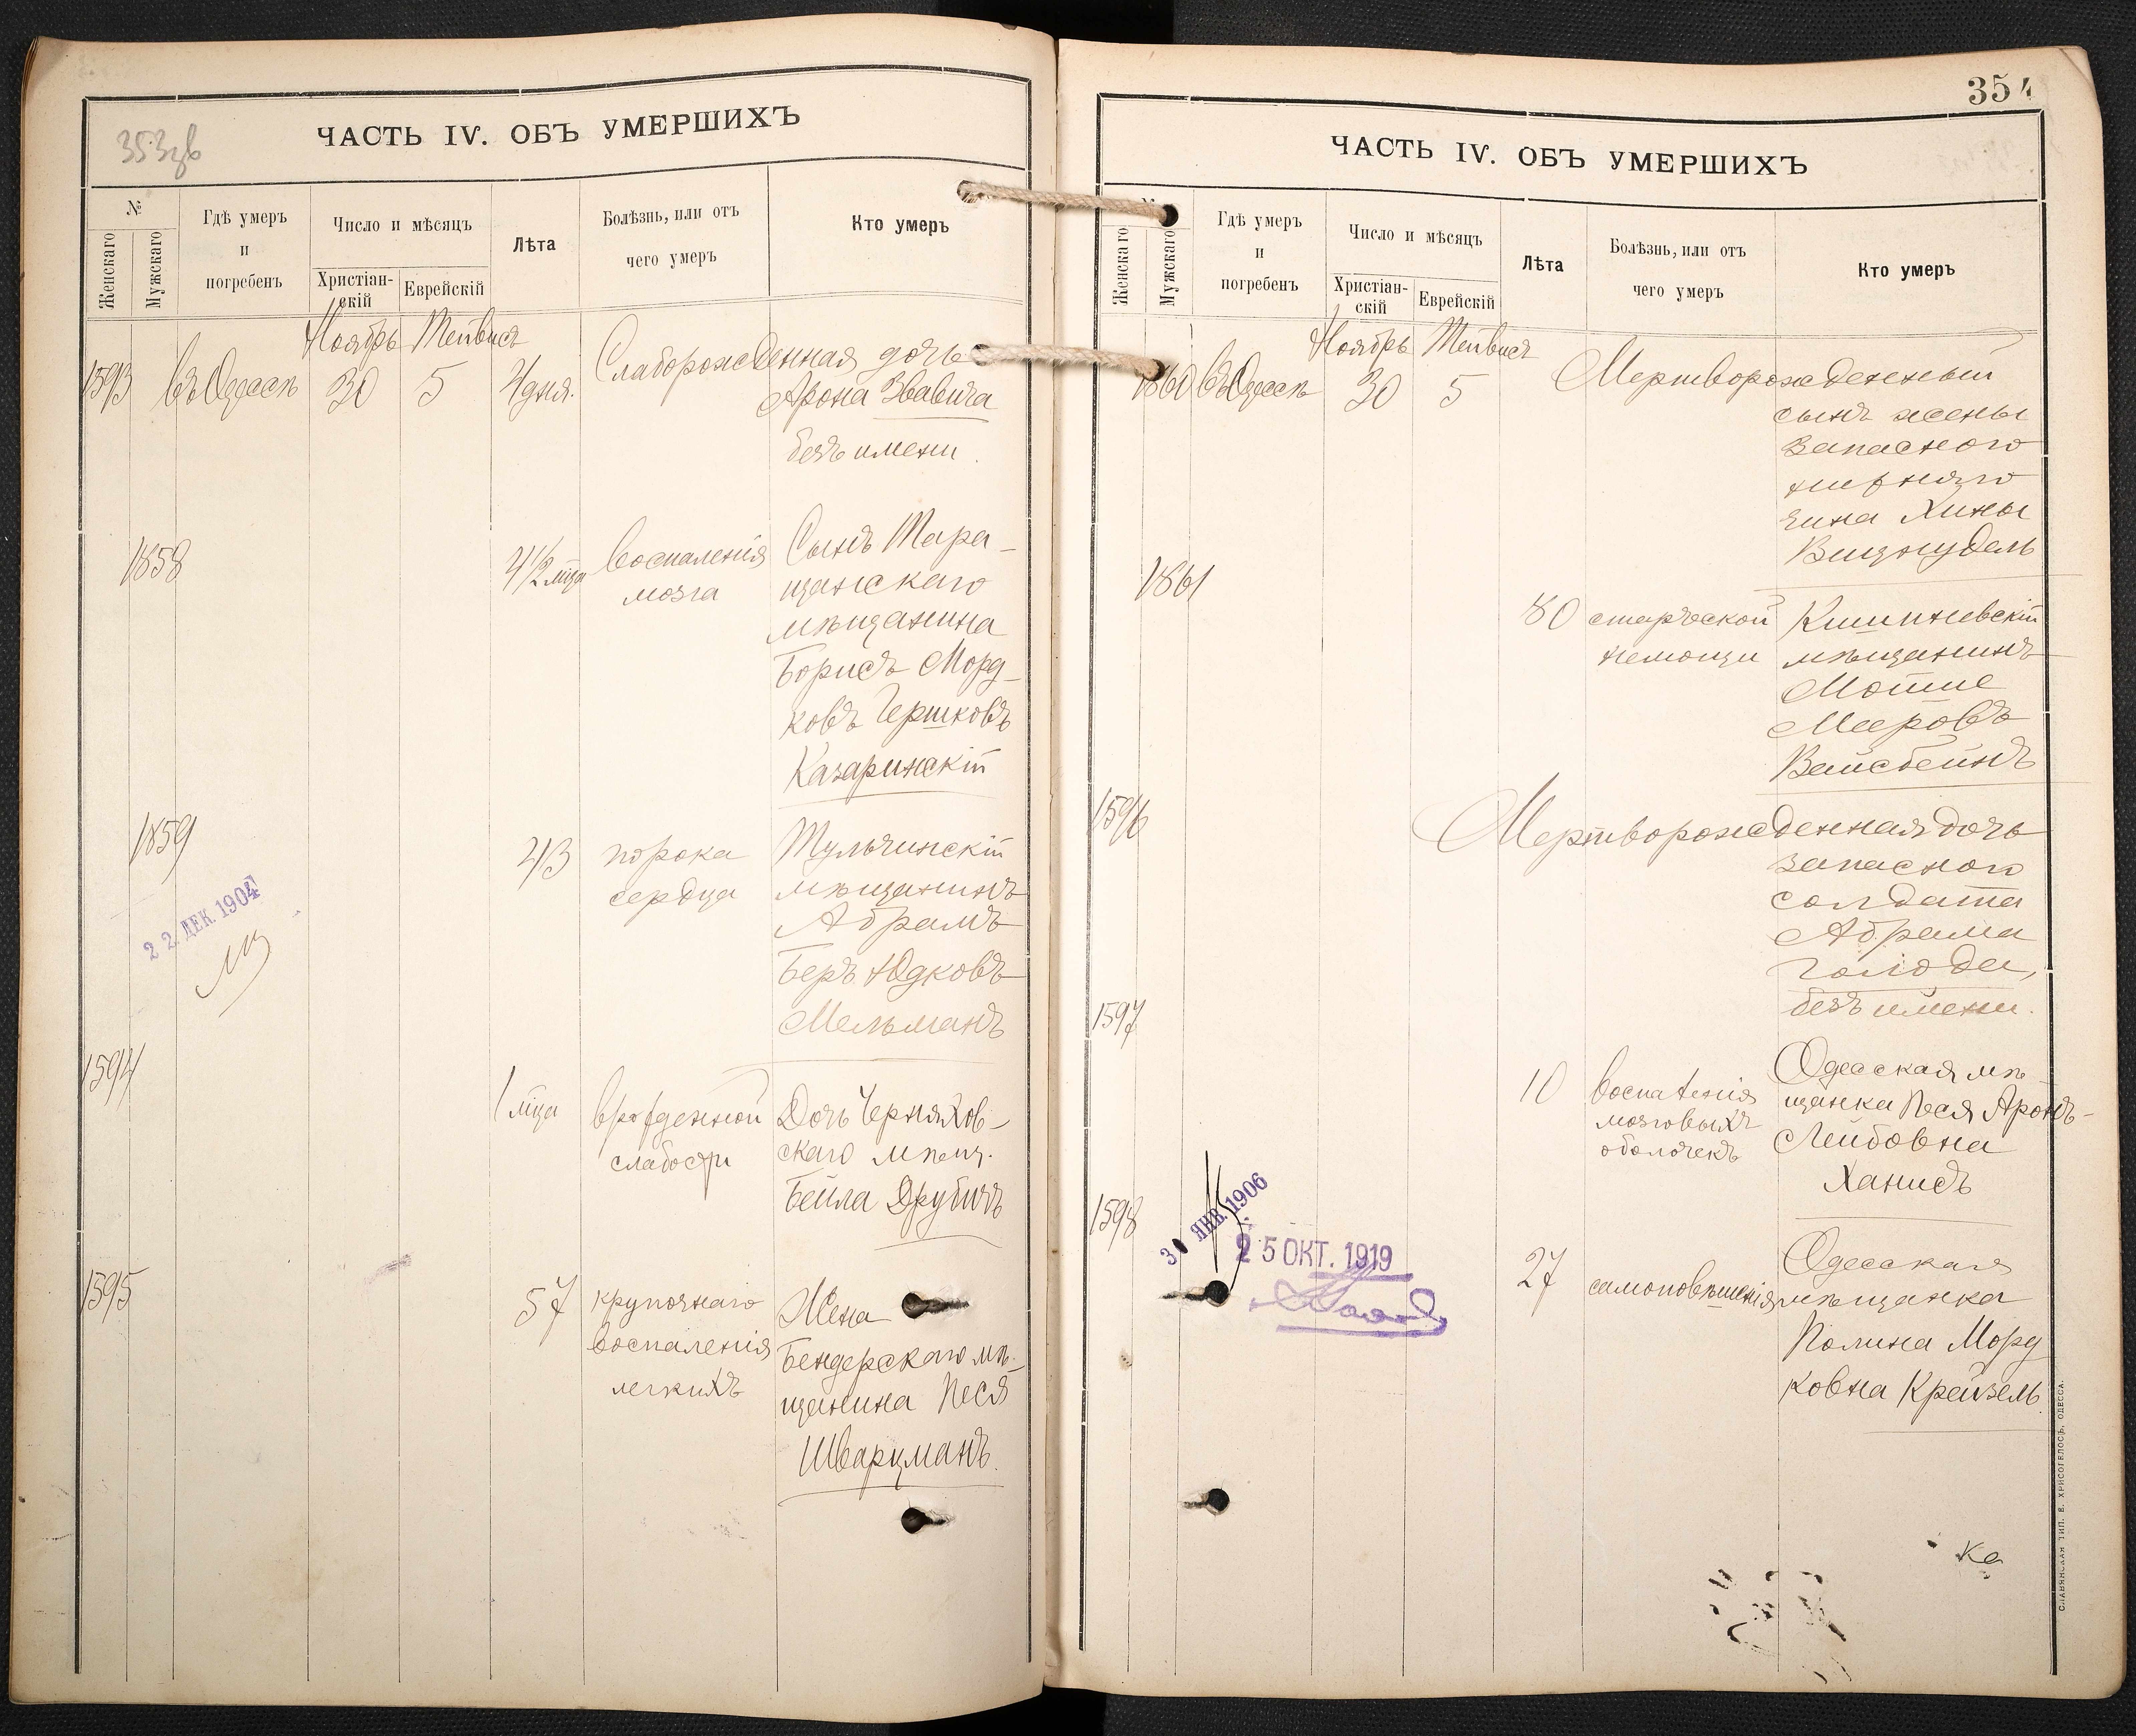 353зв
ЧАСТЬ IV. ОБЪ УМЕРШИХЪ
№
Женскаго
Мужскаго
Гдѣ умеръ
и
погребенъ
Число и мѣсяцъ
Христіан-
скій
Еврейскій
Лѣта
Болѣзнь, или отъ
чего умеръ
Кто умеръ
Ноябрь Тейвисъ
1593 въ Одессѣ 30 5 4 дня. Слаборожденная дочь
Арона Звавича
безъ имени.
1858 4½ мца воспаленія Сынъ Тара-
мозга щанскаго
мѣщанина
Борисъ Морд-
ковъ Гершковъ
Казаринскій
1859 43 порока Тульчинскій
сердца мѣщанинъ
Абрамъ
Беръ Юдковъ
Мельманъ
22 ДЕК. 1904
1594 1 мца врожденной Дочь Черняхов-
слабости скаго мѣщ.
Бейла Друбичъ
1595 57 крупознаго Жена
воспаленія Бендерскаго мѣ-
легкихъ щанина Песя
Шварцманъ.
354
ЧАСТЬ IV. ОБЪ УМЕРШИХЪ
Женскаго
Мужскаго
Гдѣ умеръ
и
погребенъ
Число и мѣсяцъ
Христіан-
скій
Еврейскій
Лѣта
Болѣзнь, или отъ
чего умеръ
Кто умеръ
Ноябрь Тейвисъ
1860 въ Одессѣ 30 5 Мертворожденный
сынъ жены
запасного
нижняго
чина Хины
1861 80 старческой Кишиневскій
немощи мѣщанинъ
Мошие
Мееровъ
Вейсбейнъ
1596 Мертворожденная дочь
запасного
солдата
Абрама
Голода,
безъ имени.
1597 10 воспаленія Одесская мѣ
мозговыхъ щанка Песя Аронъ-
оболочекъ Лейбовна
Ханисъ
1598 27 самоповѣшенія Одесская
мѣщанка
Полина Морд
ковна Крейзель.
30 ЯНВ. 1906
25 ОКТ. 1919
СЛАВЯНСКАЯ ТИП. Е. ХРИСОГЕЛОСЪ, ОДЕССА.